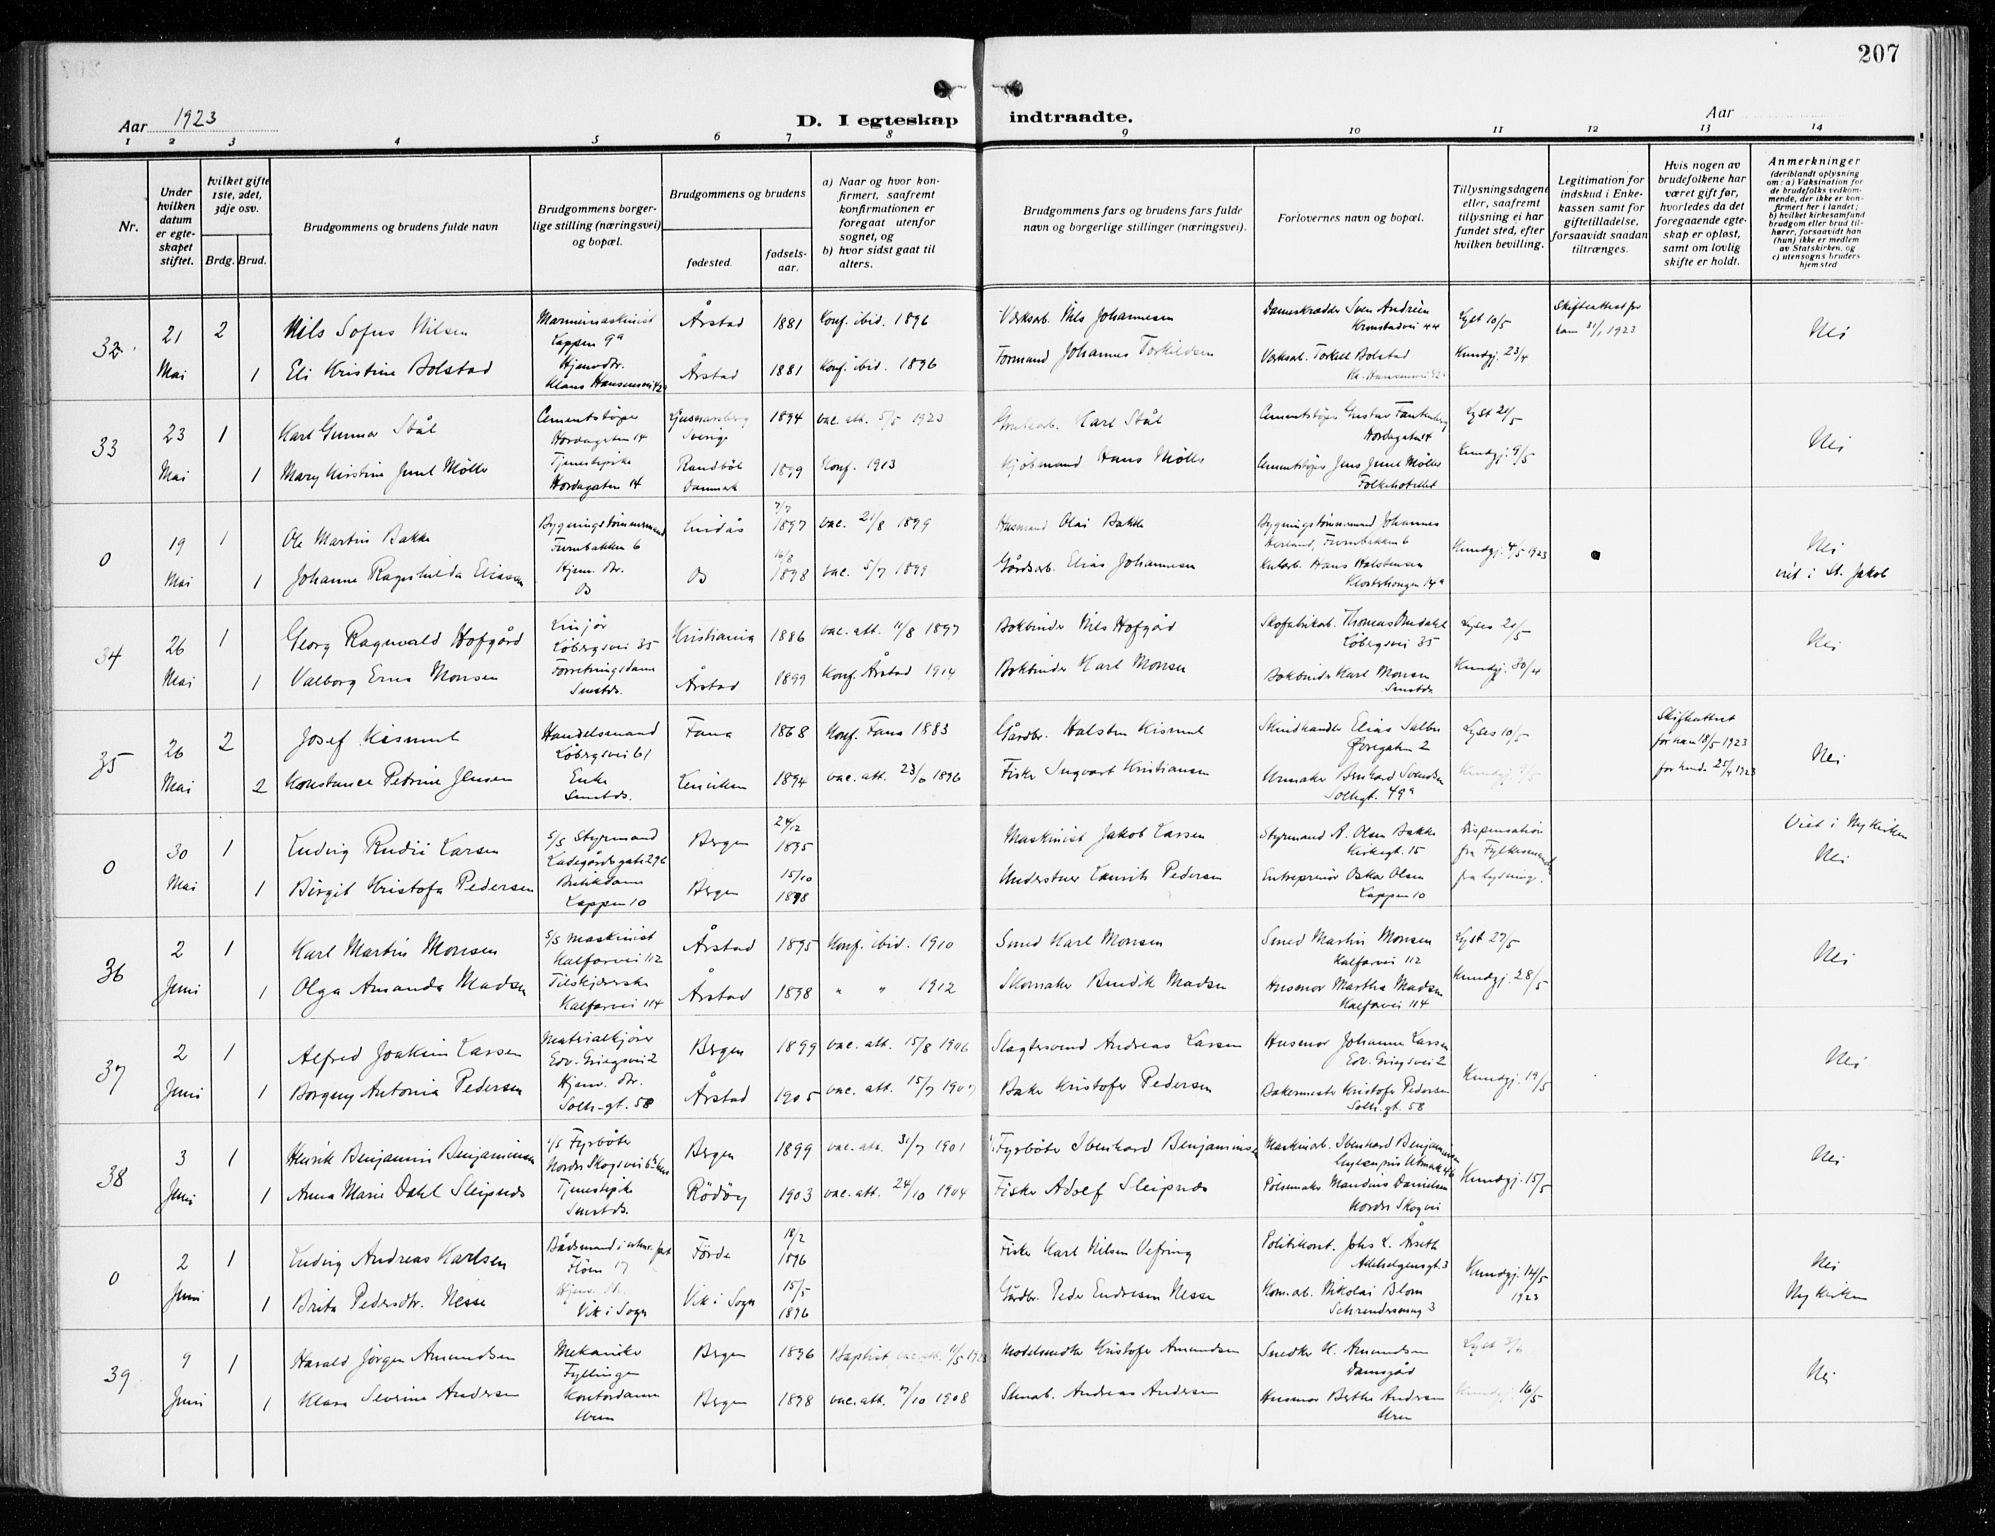 207
Aar 1923
D. I egteskap indtraadte.
Aar
1 2 3 4 5 6 7 8 9 10 11 12 13 14
Nr.
Under hvilken datum er egteskapet stiftet.
hvilket gifte 1ste, 2det, 3dje osv.
Brdg. Brud.
Brudgommens og brudens fulde navn
Brudgommens borgerlige stilling (næringsvei) og bopæl.
Brudgommens og brudens
fødested.
fødselsaar.
a) Naar og hvor konfirmert, saafremt konfirmationen er foregaat utenfor sognet, og
b) hvor sidst gaat til alters.
Brudgommens fars og brudens fars fulde navn og borgerlige stillinger (næringsvei).
Forlovernes navn og bopæl.
Tillysningsdagene eller, saafremt tillysning ei har fundet sted, efter hvilken bevilling.
Legitimation for indskud i Enkekassen samt for giftetilladelse, forsaavidt saadan tiltrænges.
Hvis nogen av brudefolkene har været gift før, hvorledes da det foregaaende egteskap er opløst, samt om lovlig skifte er holdt.
Anmerkninger
(deriblandt oplysning om: a) Vaksination for de brudefolks vedkommende, der ikke er konfirmert her i landet; b) hvilket kirkesamfund brudgom eller brud tilhører, forsaavidt han (hun) ikke er medlem av Statskirken, og c) utensogns bruders hjemsted
32 21 Mai 2 Nils Sofus Nilsen Marinemaskinist Lappen 9a Årstad 1881 Konf. ibid. 1896 Verksarb. Nils Johannesen Dameskrædder Sven Andrèn Kronstadvei 44 Lyst 10/5 Skifteattest for ham 31/1 1923 Nei
1 Eli Kristine Bolstad Hjemvdtr. Klaus Hansensvei 42 Årstad 1881 Konf. ibid. 1896 Formand Johannes Torkildsen Verksarb. Torkell Bolstad Kl. Hansensvei 42 Kundgj. 23/4
33 23 Mai 1 Karl Gunnar Stål Cementstøper Hordagaten 14 Ljusnarsberg Sverige 1894 vac. att. 5/5 1923 Karl Stål Cementstøper Gustav Hordagaten 14 Lyst 20/5 Nei
1 Mary Kirstine Juul Møller Tjenestepike Hordagaten 14 Randbøl Danmark 1899 Konf. 1913 Kjøbmand Hans Møller Cementstøper Jens Juul Møller Folkehotellet Kundgj. 9/5
0 19 Mai 1 Ole Martin Bakke Bygningstømmermand Furubakken 6 Lindås 7/7 1897 vac. 21/8 1899 Husmand Olai Bakke Bygningstømmermand Johannes Herland, Furubakken 6 Kundgj. 4/5 1923 Nei
1 Johanne Ragnhilda Eliasen Hjem. dtr. Os 16/2 1898 vac. 5/7 1899 Gårdsarb. Elias Johannesen Hans Halstensen Klosterhaugen 14a viet i St. Jakob
34 26 Mai 1 Georg Ragnvald Hofgård Linjør Løbergsvei 35 Kristiania 1886 vac. att. 11/8 1897 Bokbinder Nils Hofgård Skofabrikarb. Thomas Løbergsvei 35 Lyses 20/5 Nei
1 Valborg Erna Monsen Forretningsdame Smstds. Årstad 1899 Konf. Årstad 1914 Bokbinder Karl Monsen Bokbinder Karl Monsen Smstds Kundgj. 30/4
35 26 Mai 2 Josef Kismul Handelsmand Løbergsvei 61 Fana 1868 Konf. Fana 1883 Gårdbr. Halsten Kismul Skindhandler Elias Sælen Øvregaten 2 Lyses 10/5 Skifteattest for ham 18/5 1923 Nei
2 Konstance Petrine Jensen Enke Smstds. Leiviken 1894 vac. att. 23/6 1896 Fisker Ingvart Kristiansen Urmaker Bernhard Svendsen Solhgt. 49a Kundgj. 9/5 for hende 25/4 1923
0 30 Mai 1 Ludvig Rudii Larsen S/S Styrmand Ladegårdsgate 296 Bergen 24/12 1895 Maskinist Jakob Larsen Styrmand A. Olsen Bakke Kirkegt. 15 Dispensation fra Fylkesmanden fra lysning. Viet i Nykirken Nei
1 Birgit Kristofa Pedersen Butikdame Lappen 10 Bergen 15/10 1898 Understuer Laurits Pedersen Entreprenør Oskar Olsen Lappen 10
36 2 Juni 1 Karl Martin Monsen S/S maskinist Kalfarvei 112 Årstad 1895 Konf. ibid. 1910 Smed Karl Monsen Smed Martin Monsen Kalfarvei 112 Lyst 27/5 Nei
1 Olga Amanda Madsen Tilskjærerske Kalfarvei 114 Årstad 1898 " " 1912 Skomaker Bendik Madsen Husmor Martha Madsen Kalfarvei 114 Kundgj. 28/5
37 2 Juni 1 Alfred Joakim Larsen Materialkjører Edv. Griegsvei 2 Bergen 1899 vac. att. 15/8 1906 Slagtersvend Andreas Larsen Husmor Johanne Larsen Edv. Griegsvei 2 Kundgj. 19/5 Nei
1 Borgny Antonia Pedersen Hjem. dtr. Solh-gt. 58 Årstad 1905 vac. att. 15/7 1907 Baker Kristofer Pedersen Bakermester Kristofer Pedersen Solh-gt. 58
38 3 Juni 1 Henrik Benjamin Benjaminsen S/S Fyrbøter Nordre Skogvei Bergen 1899 vac. att. 31/7 1901 Fyrbøter Ibenhard Benjaminsen Maskinarb. Ibenhard Benjaminsen Kundgj. 15/5 Nei
1 Anna Marie Dahl Sleipnæs Tjenestepike Smstds. Rödöy 1903 vac. att. 24/10 1904 Fisker Adolf Sleipnæs Pølsemaker Mandius Danielsen Nordre Skogvei
0 2 Juni 1 Ludvig Andreas Karlsen Bådsmand Fløen 17 Førde 18/2 1896 Fisker Karl Nilsen Vefring Politikonst. Johs L. Årseth Adelheigensgt. 3 Kundgj. 14/5 1923 Nei
1 Brita Pedersdtr. Nesse Hjem. dt. Vik i Sogn Vik i Sogn 15/5 1896 Gårdbr. Peder Endresen Nesse Kom. arb. Nikolai Blom 3 Nykirken
39 9 Juni 1 Harald Jørgen Amundsen Mekaniker Fyllingen Bergen 1896 Baptist, vac. att. 11/5 1923 Modelsnedker Kristofer Amundsen Snedker K. Amundsen Damsgård Lyst 3/6 Nei
1 Klara Severine Andersen Kontordame Uren Bergen 1898 vac. att. 7/10 1908 Andreas Andersen Husmor Berthe Andersen Uren Kundgj. 16/5